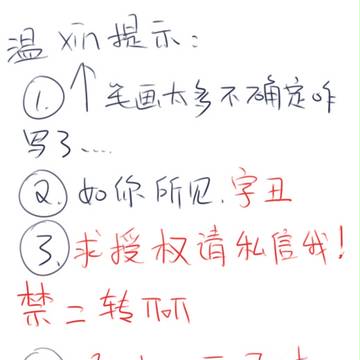 温xin提示:
①↑笔画太多不确定咋
写了....
②.如你所见.字丑
③.求授权请私信我!
禁二转